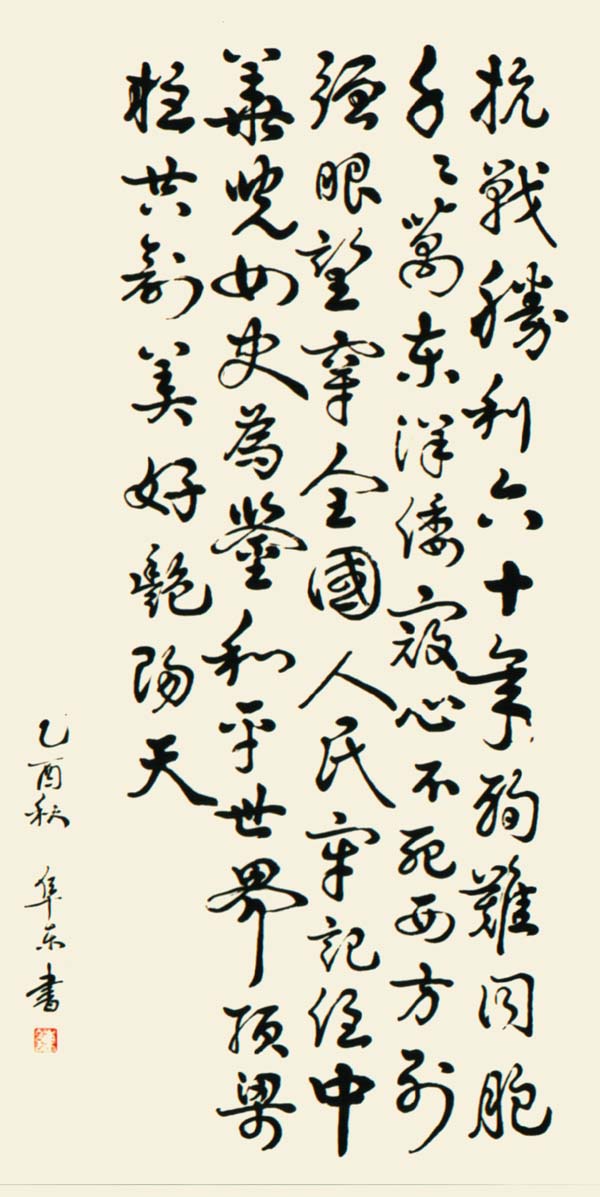 抗戰勝利六十年殉難同胞
千〻萬东洋倭寇心不死西方列
强眼望穿全國人民牢記住中
華兒女史為鑒和平世界頂梁
柱共創美好艷陽天
乙酉秋 隼东書